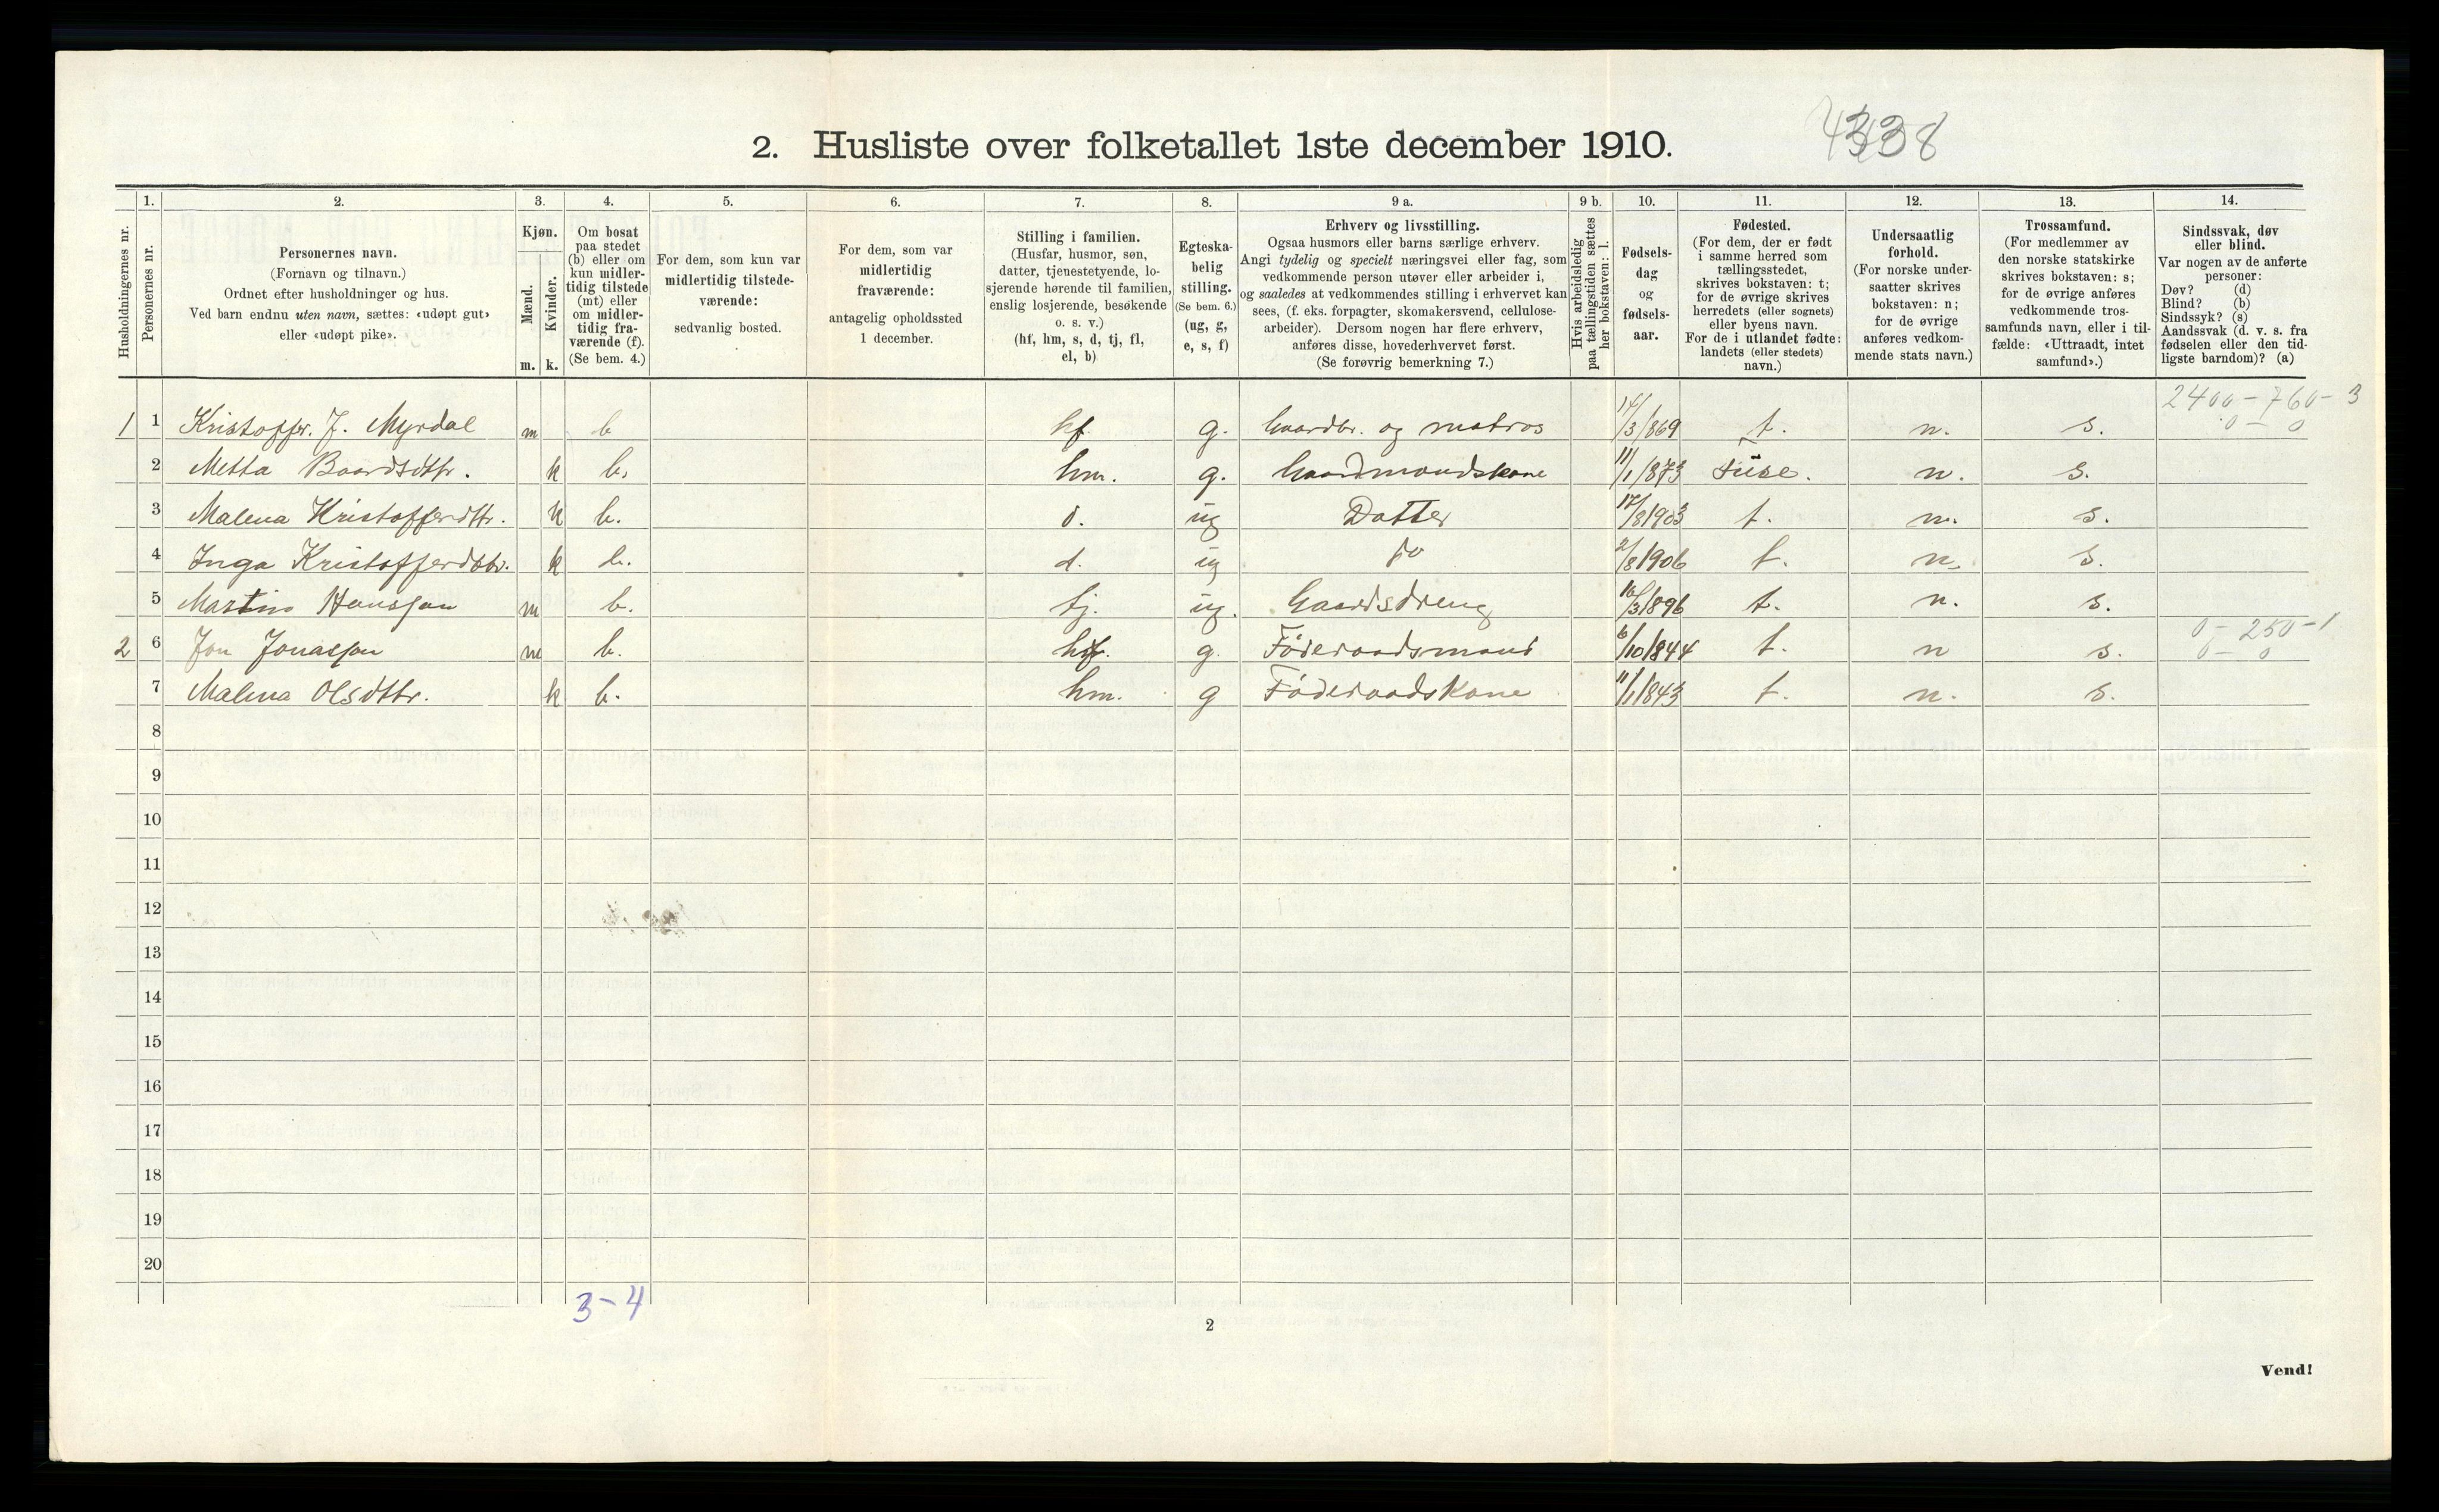 2. Husliste over folketallet 1ste december 1910.
1. 2. 3. 4. 5. 6. 7. 8. 9 a. 9 b. 10. 11. 12. 13. 14.
Husholdningernes nr.
Personernes nr.
Personernes navn.
(Fornavn og tilnavn.)
Ordnet efter husholdninger og hus.
Ved barn endnu uten navn, sættes: «udøpt gut»
eller «udøpt pike».
Kjøn.
Mænd.
Kvinder.
m. k.
Om bosat
paa stedet
(b) eller om
kun midler-
tidig tilstede
(mt) eller
om midler-
tidig fra-
værende (f).
(Se bem. 4.)
For dem, som kun var
midlertidig tilstede-
værende:
sedvanlig bosted.
For dem, som var
midlertidig
fraværende:
antagelig opholdssted
1 december.
Stilling i familien.
(Husfar, husmor, søn,
datter, tjenestetyende, lo-
sjerende hørende til familien,
enslig losjerende, besøkende
o. s. v.)
(hf, hm, s, d, tj, fl,
el, b)
Egteska-
belig
stilling.
(Se bem. 6.)
(ug, g,
e, s, f)
Erhverv og livsstilling.
Ogsaa husmors eller barns særlige erhverv.
Angi tydelig og specielt næringsvei eller fag, som
vedkommende person utøver eller arbeider i,
og saaledes at vedkommendes stilling i erhvervet kan
sees, (f. eks. forpagter, skomakersvend, cellulose-
arbeider). Dersom nogen har flere erhverv,
anføres disse, hovederhvervet først.
(Se forøvrig bemerkning 7.)
Hvis arbeidsledig
paa tællingstiden sættes
her bokstaven: l.
Fødsels-
dag
og
fødsels-
aar.
Fødested.
(For dem, der er født
i samme herred som
tællingsstedet,
skrives bokstaven: t;
for de øvrige skrives
herredets (eller sognets)
eller byens navn.
For de i utlandet fødte:
landets (eller stedets)
navn.)
Undersaatlig
forhold.
(For norske under-
saatter skrives
bokstaven: n;
for de øvrige
anføres vedkom-
mende stats navn.)
Trossamfund.
(For medlemmer av
den norske statskirke
skrives bokstaven: s;
for de øvrige anføres
vedkommende tros-
samfunds navn, eller i til-
fælde: «Uttraadt, intet
samfund».)
Sindssvak, døv
eller blind.
Var nogen av de anførte
personer:
Døv? (d)
Blind? (b)
Sindssyk? (s)
Aandssvak (d. v. s. fra
fødselen eller den tid-
ligste barndom)? (a)
2400 - 760 - 3
1 1 Kristoffer. J. Myrdal m b hf g. Gaardbr. og matros 14/3/869 t. n. s. 0 - 0
2 Metta Baardsdtr. k b. hm. g. Gaardmandskone 11/1/873 n. s.
3 Malena Kristofferdtr. k b. d. ug Datter 17/8/903 t. n. s.
4 Inga Kristofferdtr. k b. d. ug do 2/8/906 t. n. s.
5 Martin Hansson m b. tj. ug. Gaardsdreng 16/3/896 t. n. s.
0 - 250 - 1
2 6 Jon Jonasson m b. hf. g. Føderaadsmand 6/10/844 t. n s. 0 - 0
7 Malena Olsdttr. k b. hm. g Føderaadskone 11/1/843 t. n. s.
8
9
10
11
12
13
14
15
16
17
18
19
20
3-4
2
Vend!